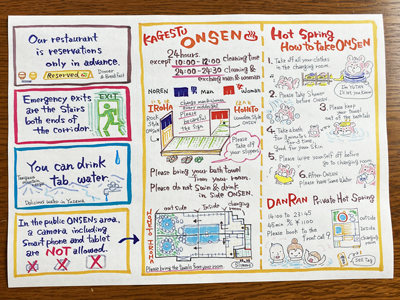 Our restaurant
is reservations
only in advance.
Reserved
Dinner
& Breakfast
Emergency exits
are the Stairs
both ends
of the Corridor.
EXIT
You can drink
tab water.
Delicious water in Yuzawa
In the public ONSENs area,
a camera including
Smart phone and tablet
are NOT allowed.
KAGETSU
ONSEN
24 hours.
except 10:00-12:00 cleaning time
24:00-24:30 cleaning &
exchanging man & woman
NOREN
Man
Woman
IROHA
HONJTO
Please
take off
your slippers
Please bring your bath towel
from your room.
Please do not Swim & drink
in side ONSEN.
out side
Inside
changing
Please bring the towels from your room.
Hot Spring
How to take ONSEN
1. Take off all your clothes
in the changing room.
2. Please take Shower
before ONSEN
3. Please keep
your towel
out of the bathtub
4. Take a bath
for 3 minutes
for a time.
Good for your Skin
5. Please wipe yourself off before
go to changing room
6. After ONSEN
Please have Some Water
DANRAN Private Hot Spring
14:00 to 23:45
45min ¥1100
Please book to the
front Call 9
outside
inside
changing
Set Tag